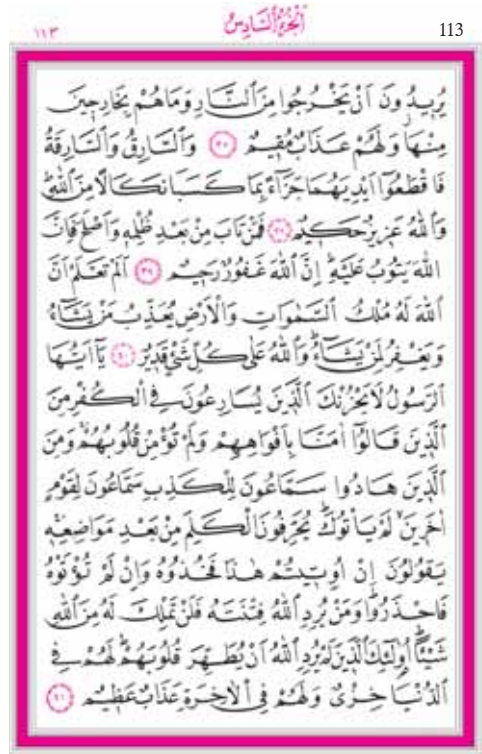 113 اَلْجُزْءُ السَّادِسُ ١١٣
يُر۪يدُونَ اَنْ يَخْرُجُوا مِنَ النَّارِ وَمَا هُمْ بِخَارِج۪ينَ
مِنْهَاۘ وَلَهُمْ عَذَابٌ مُق۪يمٌ ﴿٣٧﴾ وَالسَّارِقُ وَالسَّارِقَةُ
فَاقْطَعُٓوا اَيْدِيَهُمَا جَزَٓاءً بِمَا كَسَبَا نَكَالًا مِنَ اللّٰهِۜ
وَاللّٰهُ عَز۪يزٌ حَك۪يمٌ ﴿٣٨﴾ فَمَنْ تَابَ مِنْ بَعْدِ ظُلْمِه۪ وَاَصْلَحَ فَاِنَّ
اللّٰهَ يَتُوبُ عَلَيْهِۜ اِنَّ اللّٰهَ غَفُورٌ رَح۪يمٌ ﴿٣٩﴾ اَلَمْ تَعْلَمْ اَنَّ
اللّٰهَ لَهُ مُلْكُ السَّمٰوَاتِ وَالْاَرْضِۜ يُعَذِّبُ مَنْ يَشَٓاءُ
وَيَغْفِرُ لِمَنْ يَشَٓاءُۜ وَاللّٰهُ عَلٰى كُلِّ شَيْءٍ قَد۪يرٌ ﴿٤٠﴾ يَٓا اَيُّهَا
الرَّسُولُ لَا يَحْزُنْكَ الَّذ۪ينَ يُسَارِعُونَ فِي الْكُفْرِ مِنَ
الَّذ۪ينَ قَالُٓوا اٰمَنَّا بِاَفْوَاهِهِمْ وَلَمْ تُؤْمِنْ قُلُوبُهُمْۚ وَمِنَ
الَّذ۪ينَ هَادُوا سَمَّاعُونَ لِلْكَذِبِ سَمَّاعُونَ لِقَوْمٍ
اٰخَر۪ينَۙ لَمْ يَأْتُوكَۜ يُحَرِّفُونَ الْكَلِمَ مِنْ بَعْدِ مَوَاضِعِه۪ۚ
يَقُولُونَ اِنْ اُو۫ت۪يتُمْ هٰذَا فَخُذُوهُ وَاِنْ لَمْ تُؤْتَوْهُ
فَاحْذَرُواۜ وَمَنْ يُرِدِ اللّٰهُ فِتْنَتَهُ فَلَنْ تَمْلِكَ لَهُ مِنَ اللّٰهِ
شَيْـًٔاۜ اُو۬لٰٓئِكَ الَّذ۪ينَ لَمْ يُرِدِ اللّٰهُ اَنْ يُطَهِّرَ قُلُوبَهُمْۜ لَهُمْ فِي
الدُّنْيَا خِزْيٌ وَلَهُمْ فِي الْاٰخِرَةِ عَذَابٌ عَظ۪يمٌ ﴿٤١﴾